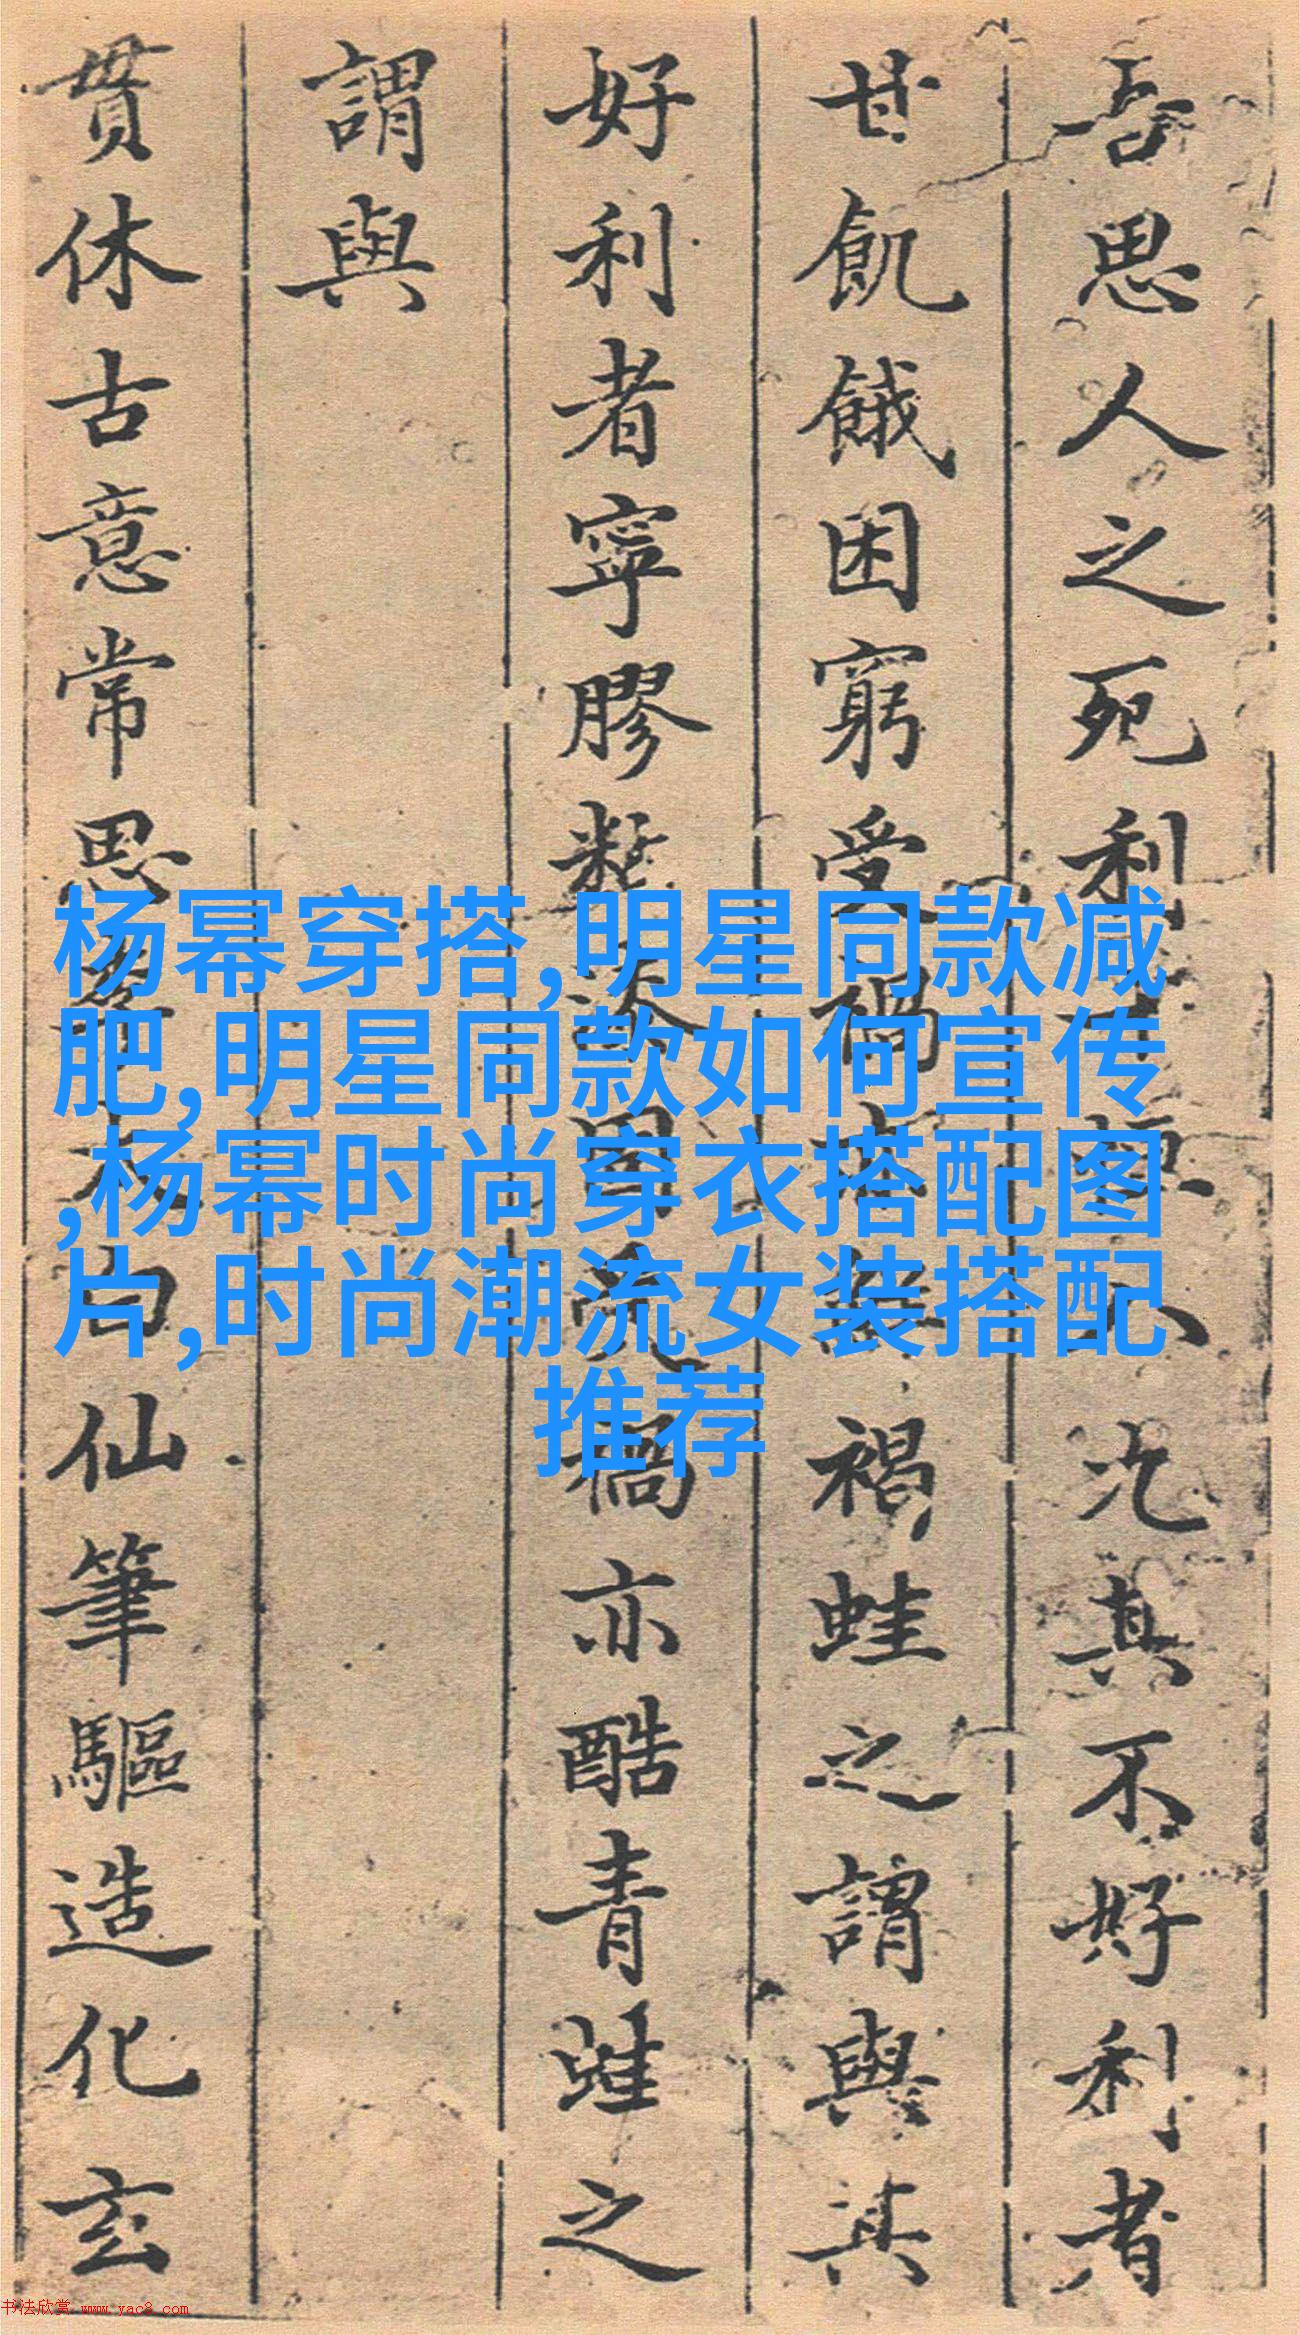 吾思人之死利
其不好利者
甘飢餓困窮受禍
褐蛙之謂與其
好利者寧膠
禍亦酷青蛙之
謂與
貫休古意常思
仙筆驅造化玄
杨幂穿搭,明星同款减
肥,明星同款如何宣传
,杨幂时尚穿衣搭配图
片,时尚潮流女装搭配
推荐
书法欣赏 www.yac8.com